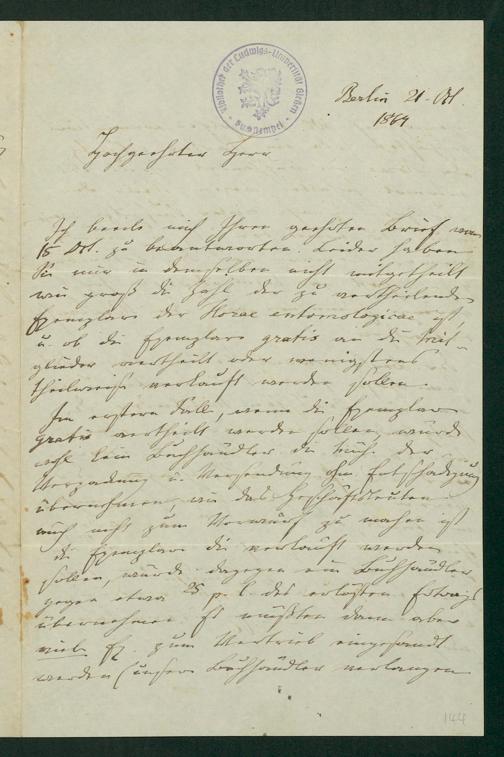 Bibliothek der Ludwigs-Universität Gießen
Berlin 21. Okt
1864
Hochgeehrter Herr
Ich beeile mich Ihren geehrten Brief vom
15 Oct. zu beantworten. Leider haben
Sie mir in demselben nicht mitgetheilt
wie groß die Zahl der zu vertheilenden
Exemplare der Horae entomologicae ist
u. ob die Exemplare gratis an die Mit-
glieder vertheilt oder wenigstens
theilweise verkauft werden sollen.
Im erstern Fall, wenn die Exemplare
gratis vertheilt werden sollen, würde
wohl kein Buchhändler die Mühe der
Verpackung u. Versendung ohne Entschädigung
übernehmen, wie das Geschäftsleuten
auch nicht zum Vorwurf zu machen ist
die Exemplare die verkauft werden
sollen, würde dagegen ein Buchhändler
gegen etwa 25 p. C. des erlösten Ertrags
übernehmen. Es müßten dann aber
viele Ex. zum Vertrieb eingesandt
werden (unsere Buchhändler verlangen
144